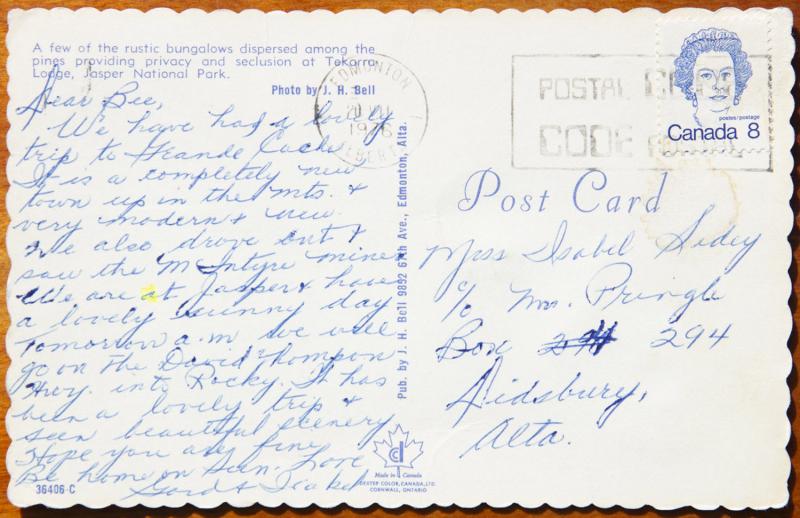 A few of the rustic bungalows dispersed among the
pines providing privacy and seclusion at Tekarra
Lodge, Jasper National Park.
Photo by J. H. Bell
Dear Bee,
We have had a lovely
trip to Grande Cache
It is a completely new
town up in the mts. &
very modern & new.
We also drove out &
saw the McIntyre mines
We are at Jasper & have
a lovely sunny day
Tomorrow a.m we will
go on the David Thompson
Hwy. into Rocky. It has
been a lovely trip &
seen beautiful scenery
Hope you are fine
Be home on Sun. Love
Gord & Isabel
36406-C
Pub. by J. H. Bell 9852 67th Ave., Edmonton, Alta.
Made in Canada
DEXTER COLOR, CANADA, LTD.
CORNWALL, ONTARIO
EDMONTON
1976
ALBERTA
POSTAL
CODE
postes/postage
Canada 8
Post Card
Miss Isabel
c/o Mrs. Pringle
Box 294
Didsbury,
Alta.